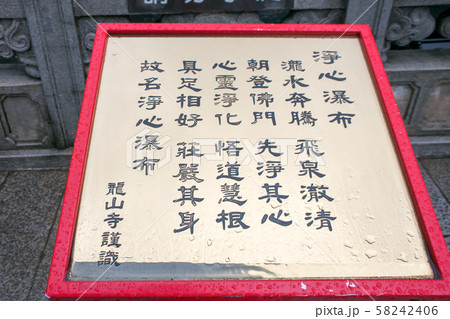 淨心瀑布
瀧水奔騰 飛泉澈清
朝登佛門 先淨其心
心靈淨化 悟道慧根
具足相好 莊嚴其身
故名淨心瀑布
龍山寺謹識
pixta.jp - 58242406